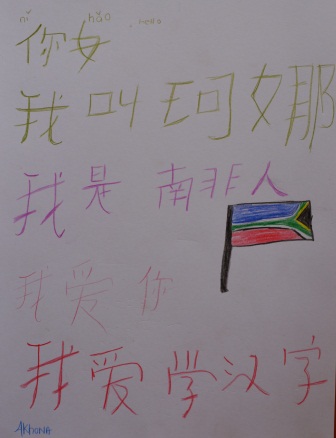 nǐ hǎo hello
你女
我叫珂娜
我是南非人
我爱你
我爱学汉字
AKhona